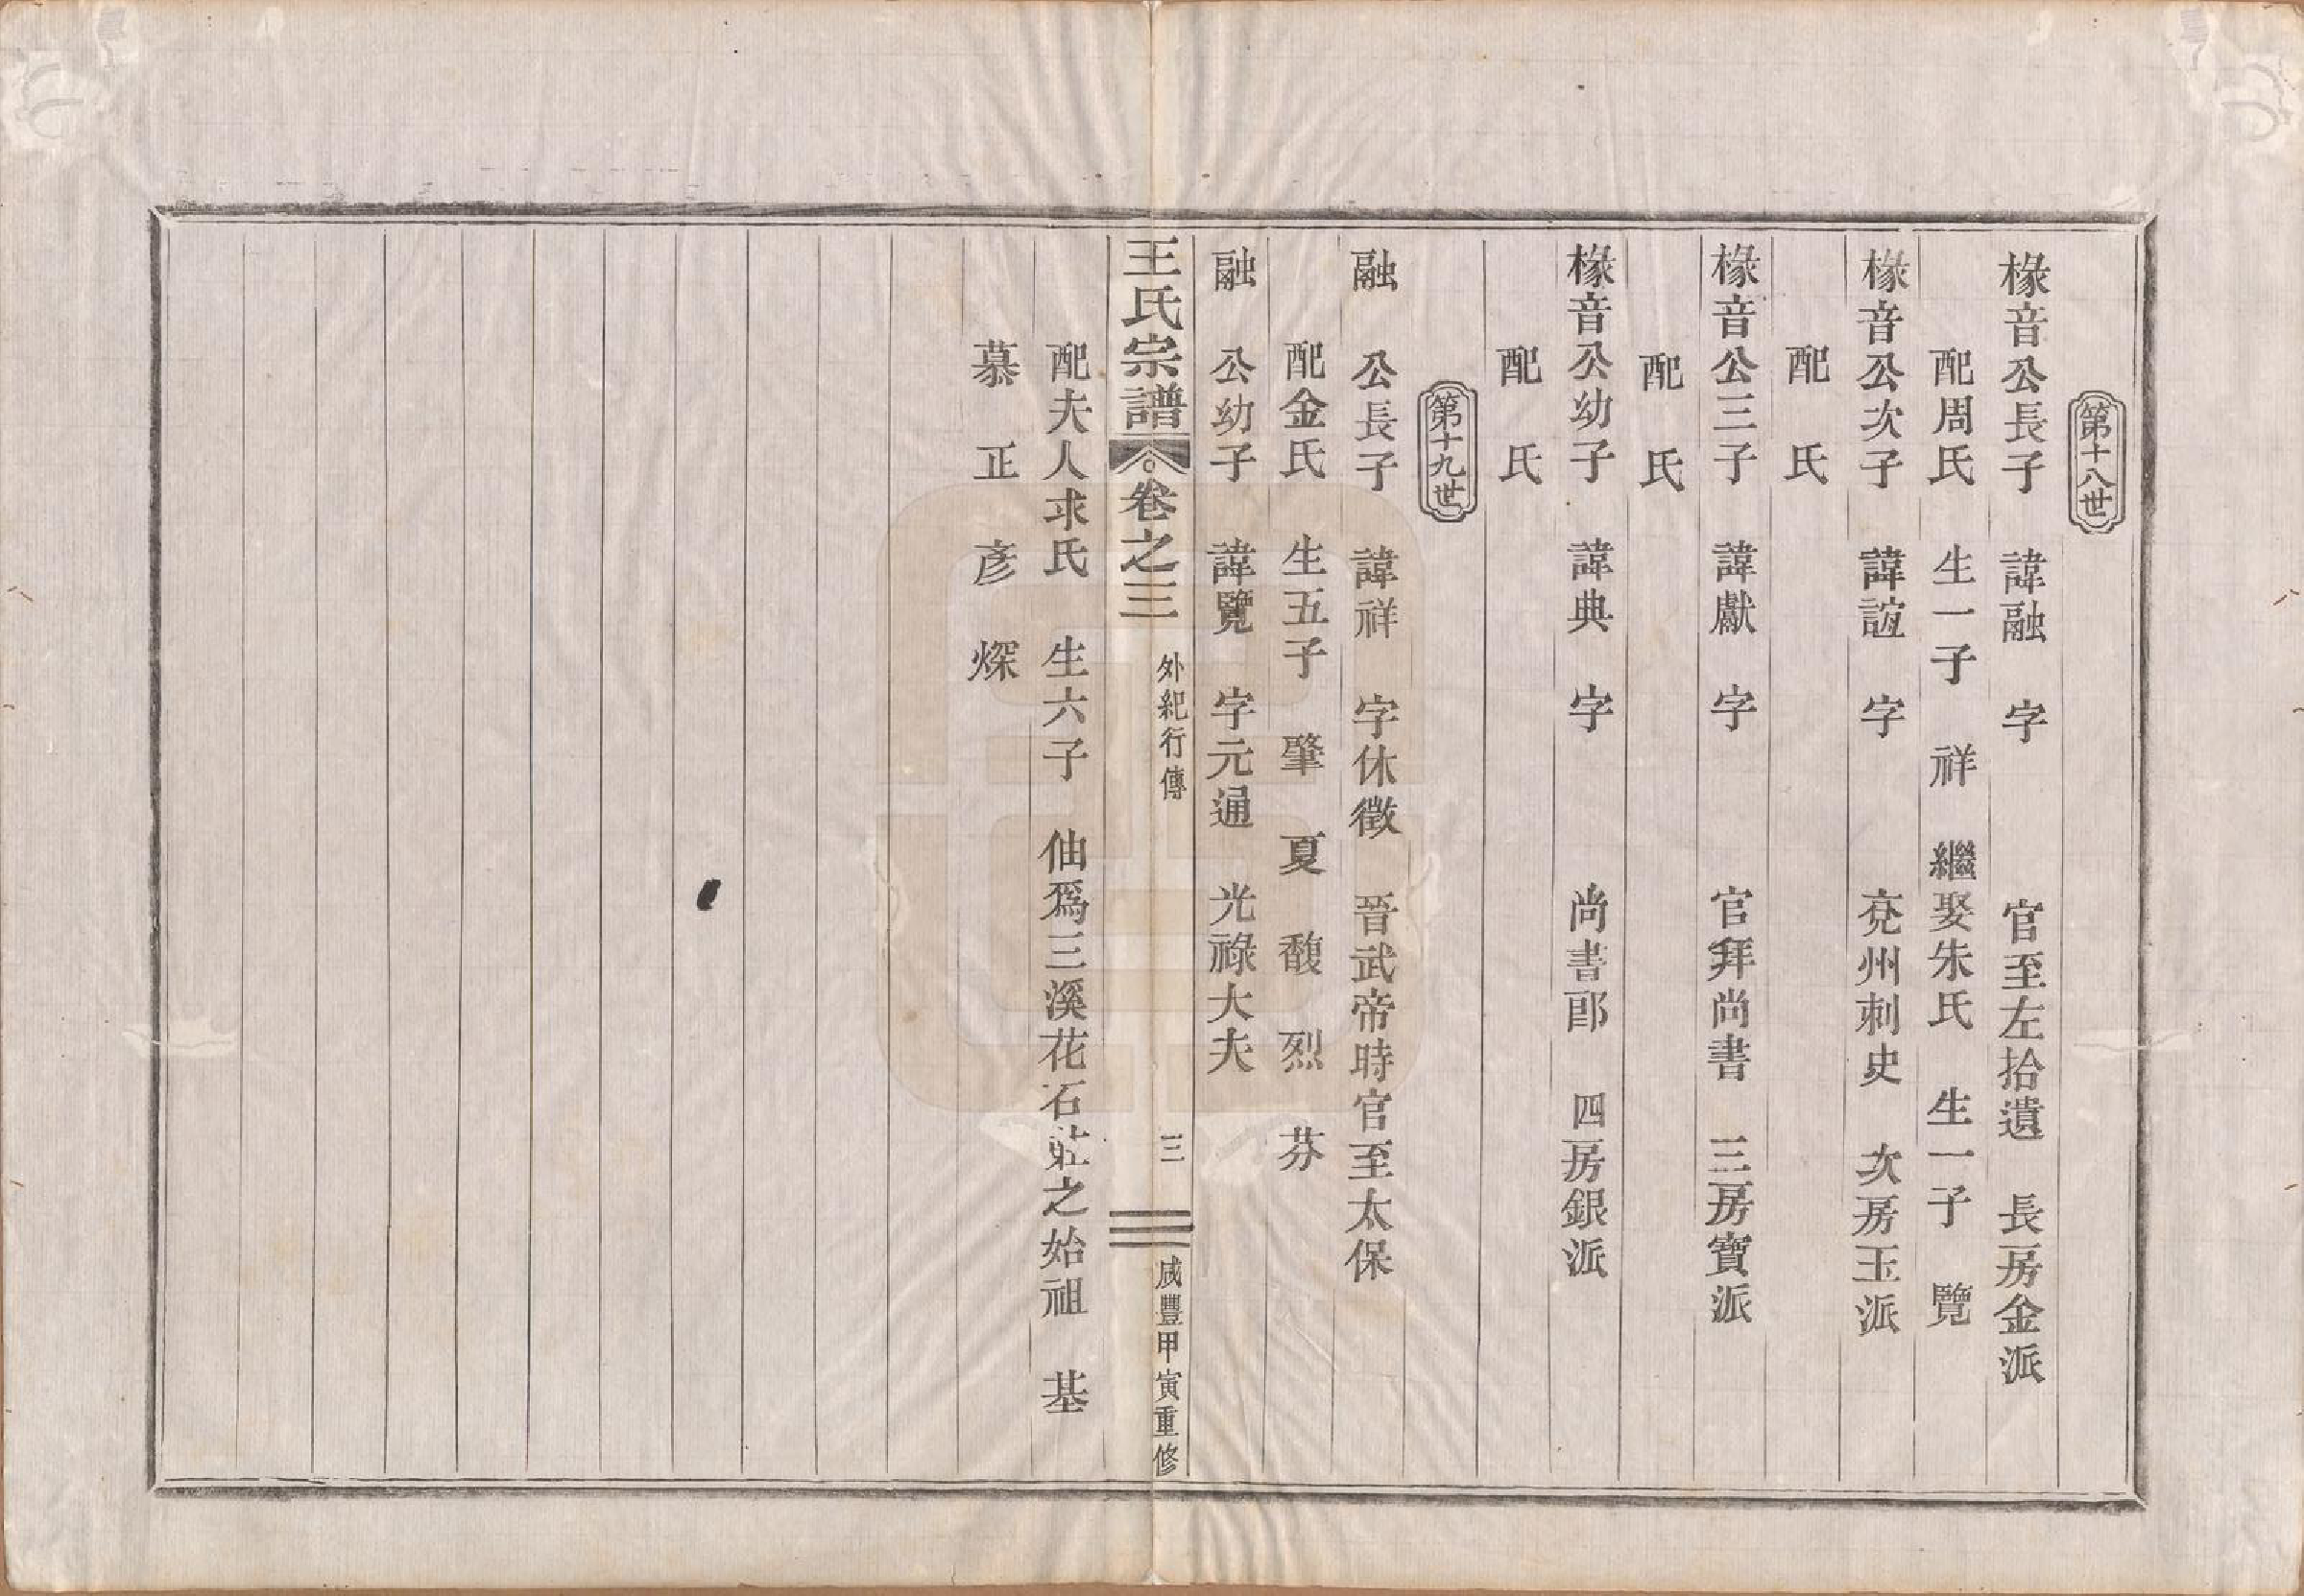 第十八世
椽音公長子 諱融 字 官至左拾遺 長房金派
配周氏 生一子 祥 繼娶朱氏 生一子 覽
椽音公次子 諱誼 字 兗州刺史 次房玉派
配 氏
椽音公三子 諱獻 字 官拜尚書 三房寶派
配 氏
椽音公幼子 諱典 字 尚書郎 四房銀派
配 氏
第十九世
融 公長子 諱祥 字休徵 晉武帝時官至太保
配金氏 生五子 肇 夏 馥 烈 芬
融 公幼子 諱覽 字元通 光祿大夫
王氏宗譜 卷之三 外紀行傳 三 咸豐甲寅重修
配夫人求氏 生六子 伷爲三溪花石莊之始祖 基
慕 正 彥 㷎